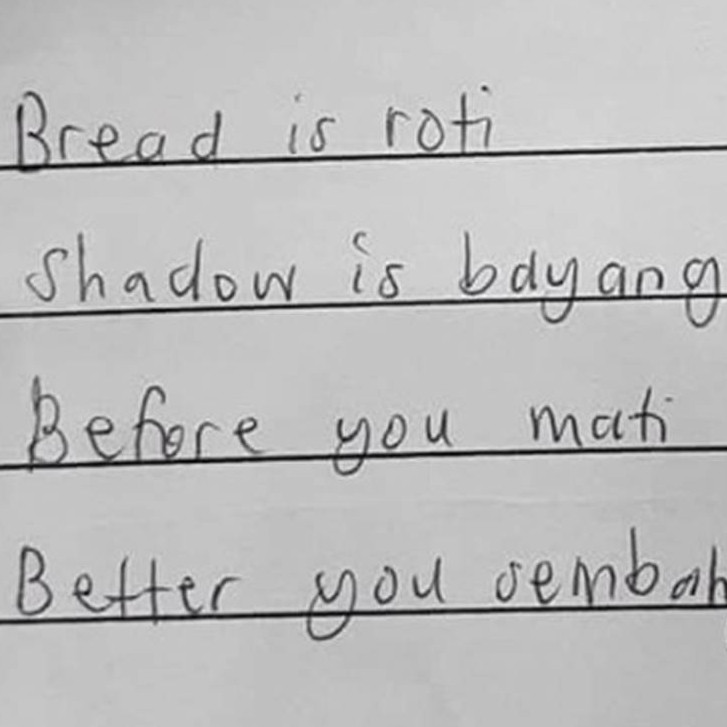 Bread is roti
Shadow is bayang
Before you mati
Better you sembah